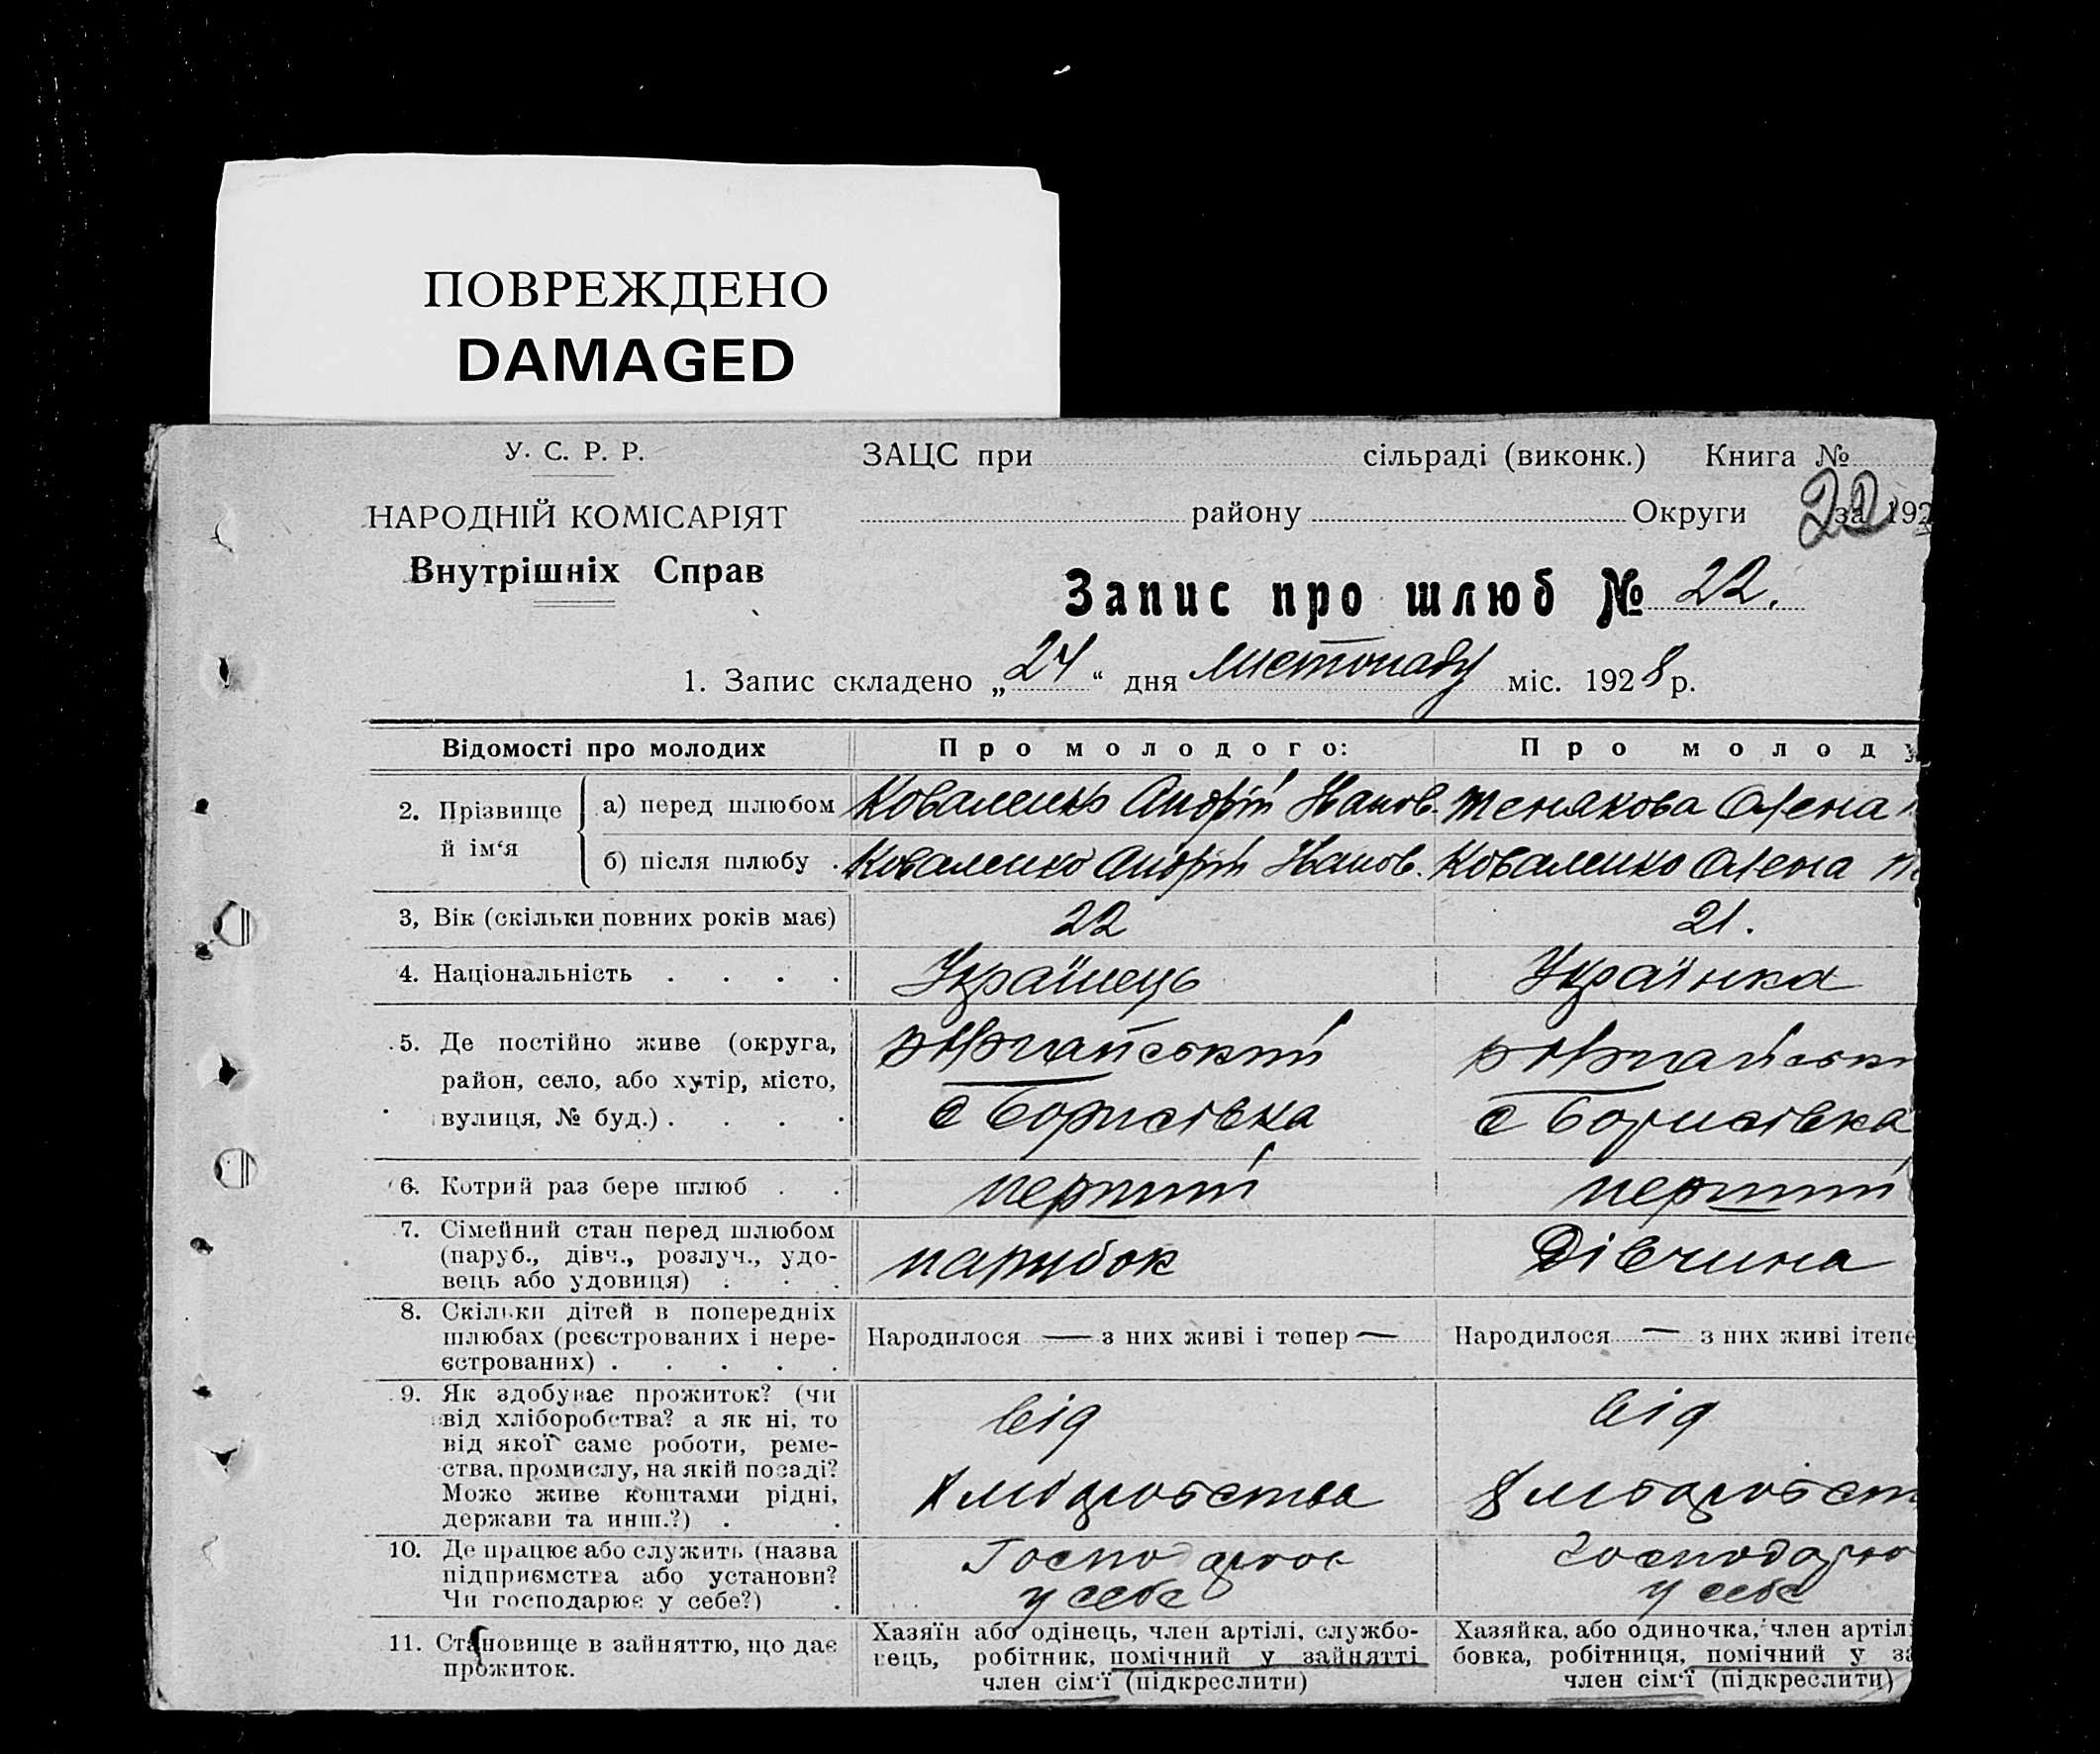 ПОВРЕЖДЕНО
DAMAGED
У. С. Р. Р.
НАРОДНІЙ КОМІСАРІЯТ
Внутрішніх Справ
ЗАЦС при сільраді (виконк.) Книга №
району Округи за 192
22
Запис про шлюб № 22.
1. Запис складено „24“ дня листопаду міс. 1928 р.
Відомості про молодих Про молодого: Про молоду
2. Прізвище й ім‘я
а) перед шлюбом Коваленко Андрій Иванов. Тенякова Олена
б) після шлюбу Коваленко Андрій Иванов. Коваленко Олена
3, Вік (скільки повних років має) 22 21.
4. Національність . . . . Українець Українка
5. Де постійно живе (округа,
район, село, або хутір, місто,
вулиця, № буд.) . . . .
с Борисівка
с Борисівка
6. Котрий раз бере шлюб . . перший перший
7. Сімейний стан перед шлюбом
(паруб., дівч., розлуч., удо-
вець або удовиця) . . .
парубок Дівчина
8. Скільки дітей в попередніх
шлюбах (реєстрованих і нере-
єстрованих) . . . . .
Народилося — з них живі і тепер —
Народилося — з них живі ітепе
9. Як здобуває прожиток? (чи
від хліборобства? а як ні, то
від якої саме роботи, реме-
ства, промислу, на якій посаді?
Може живе коштами рідні,
держави та инш.?) . .
від
хліборобства
від
хліборобст
10. Де працює або служить (назва
підприємства або установи?
Чи господарює у себе?) .
Господарює
у себе
господарю
у себе
11. Становище в зайняттю, що дає
прожиток.
Хазяїн або одінець, член артілі, службо-
вець, робітник, помічний у зайнятті
член сім‘ї (підкреслити)
Хазяйка, або одиночка, член артілі
бовка, робітниця, помічний у за
член сім‘ї (підкреслити)